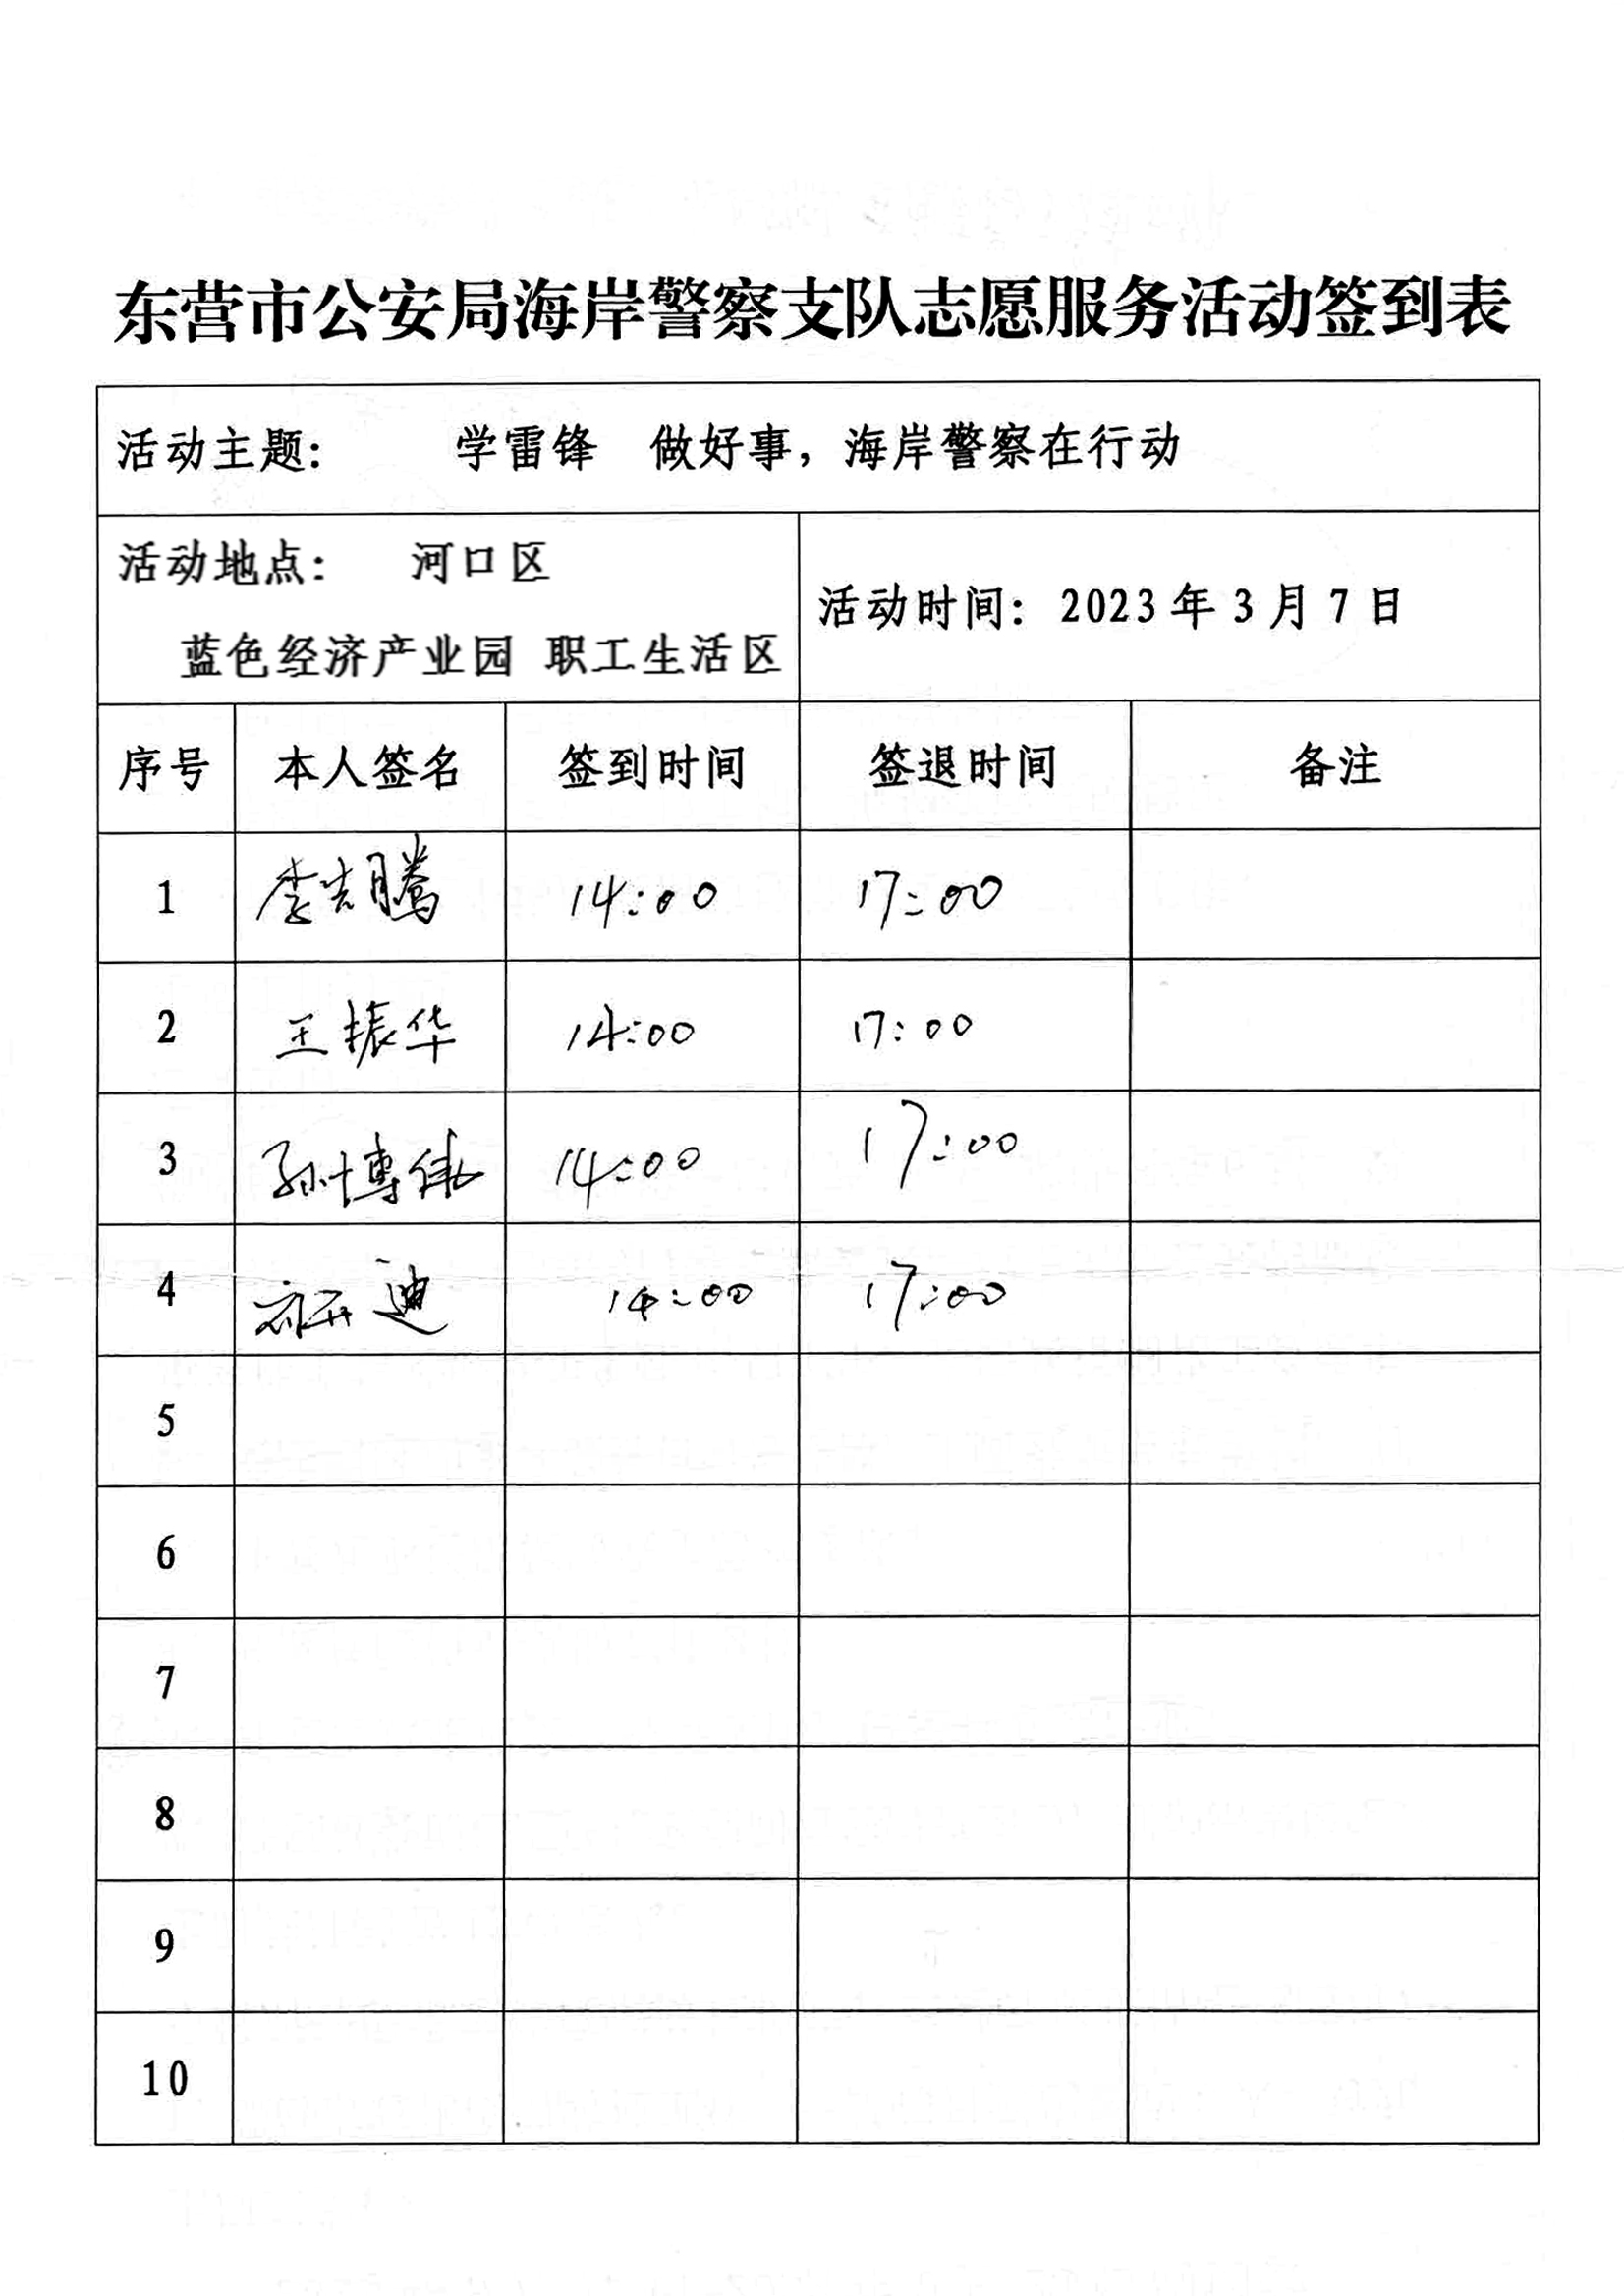 东营市公安局海岸警察支队志愿服务活动签到表
活动主题: 学雷锋 做好事，海岸警察在行动
活动地点: 河口区
蓝色经济产业园 职工生活区
活动时间: 2023年3月7日
序号 本人签名 签到时间 签退时间 备注
1 李吉腾 14:00 17:00
2 王振华 14:00 17:00
3 孙博伟 14:00 17:00
4 迪 14:00 17:00
5
6
7
8
9
10